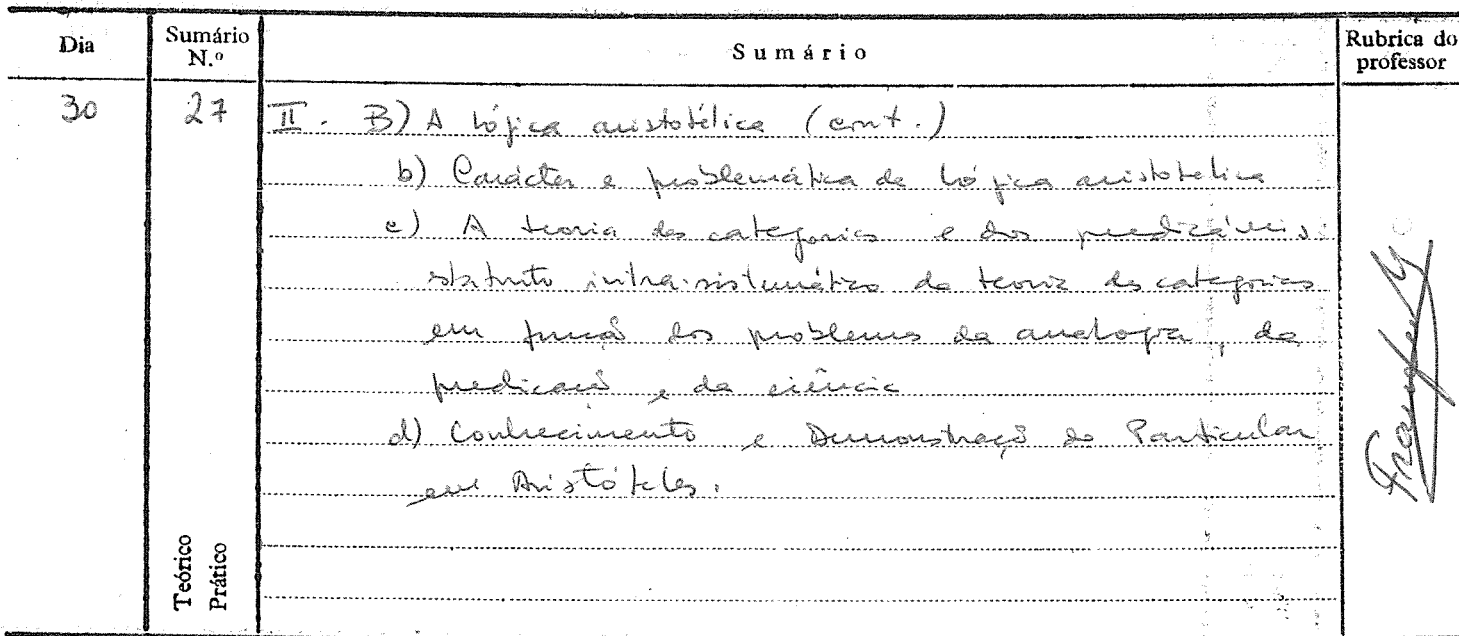 Dia
Sumário N.º
Sumário
Rubrica do professor
30
27
II. B) A lógica aristotélica (cont.)
b) Carácter e problemática da lógica aristotélica
c) A teoria das categorias e dos predicáveis:
statuto intra-sistemático da teoria das categorias
em função dos problemas da analogia, da
predicação e da ciência
d) Conhecimento e Demonstração do Particular
em Aristóteles.
Teórico
Prático